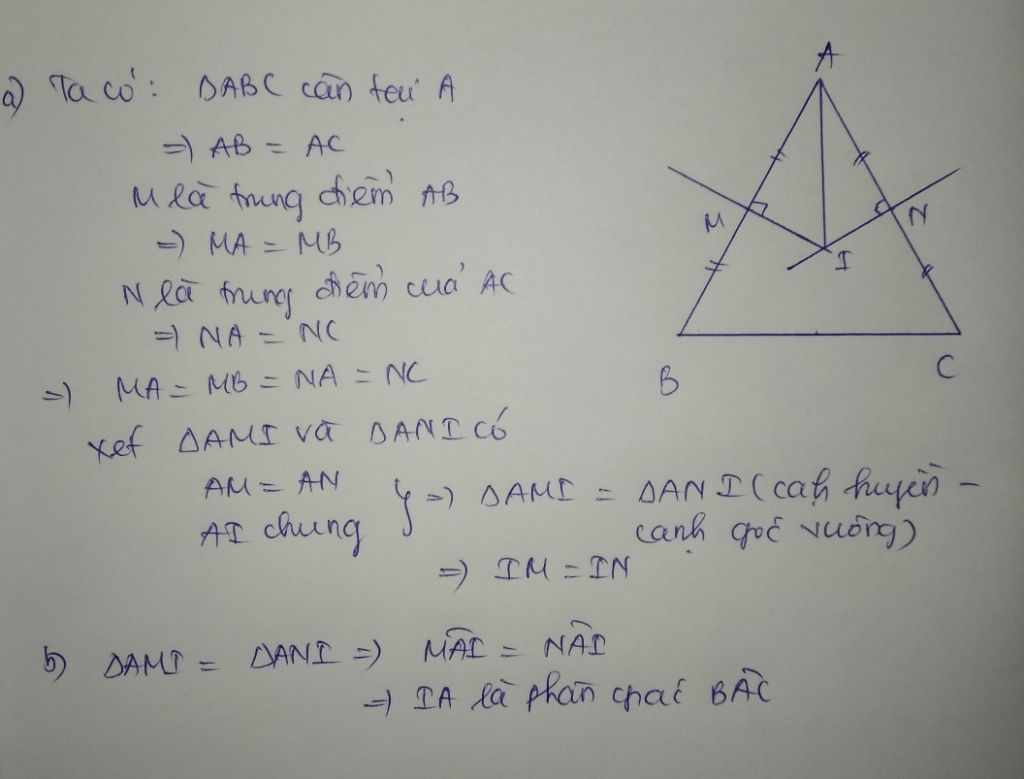 a) Ta có: ΔABC cân tại A
=> AB = AC
M là trung điểm AB
=> MA = MB
N là trung điểm của AC
=> NA = NC
=> MA = MB = NA = NC
xét ΔAMI và ΔANI có
AM = AN
AI chung } => ΔAMI = ΔANI (cạnh huyền -
cạnh góc vuông)
=> IM = IN
b) ΔAMI = ΔANI => MÂI = NÂI
=> IA là phân giác BÂC
A
M
N
I
B
C